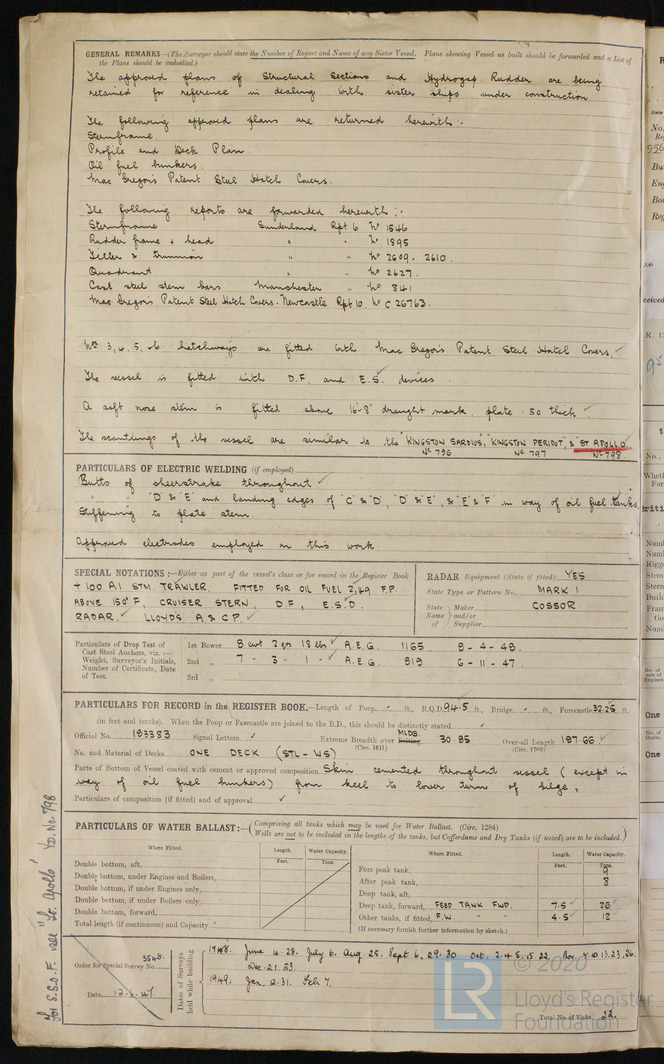 GENERAL REMARKS—(The Surveyor should state the Number of Report and Name of any Sister Vessel. Plans showing Vessel as built should be forwarded and a List of
the Plans should be embodied.)
The approved plans of Structural Sections and Hydrogap Rudder are being
retained for reference in dealing with sister ships under construction
The following approved plans are returned herewith :-
Sternframe
Profile and Deck Plan
Oil fuel bunkers.
Mac Gregor's Patent Steel Hatch Covers.
The following reports are forwarded herewith :-
Sternframe Sunderland Rpt 6 No 1546
Rudder frame & head " " No 1895
Tiller & trunnion " " No 2609 - 2610.
Quadrant " " No 2627.
Cast steel stem bars Manchester " No 841
Mac Gregor's Patent Steel Hatch Covers. Newcastle Rpt 10. No C 26763.
Nos 3, 4, 5, & 6 hatchways are fitted with Mac Gregor's Patent Steel Hatch Covers.
The vessel is fitted with D.F. and E.S. devices.
A soft nose stem is fitted above 16'-8" draught mark, plate .50 thick
The scantlings of the vessel are similar to the "KINGSTON SARDIUS", "KINGSTON PERIDOT", & "ST APOLLO"
No 796 No 797 No 798
PARTICULARS OF ELECTRIC WELDING (if employed)
Butts of sheerstrake throughout
" " "D & E" and landing edges of "C & D", "D & E", & "E & F" in way of oil fuel tanks.
Stiffening to plate stem.
Approved electrodes employed on this work
SPECIAL NOTATIONS:—Either as part of the vessel's class or for record in the Register Book
+ 100 A1 STM. TRAWLER. FITTED FOR OIL FUEL 2,49 F.P.
ABOVE 150°F, CRUISER STERN, D.F., E.S.D.
RADAR. LLOYD'S A & C.P.
RADAR Equipment (State if fitted) YES
State Type or Pattern No. MARK 1
State Name of Maker and/or Supplier COSSOR
Particulars of Drop Test of
Cast Steel Anchors, viz.:—
Weight, Surveyor's Initials,
Number of Certificate, Date
of Test.
1st Bower 8 cwt 2 qrs 18 lbs A.E.G. 1165 8 - 4 - 48.
2nd " 7 - 3 - 1 - A.E.G. 819 6 - 11 - 47.
3rd "
PARTICULARS FOR RECORD in the REGISTER BOOK.—Length of Poop - ft., R.Q.D. 94.5 ft., Bridge - ft., Forecastle 32.25 ft.
(in feet and tenths). When the Poop or Forecastle are joined to the B.D., this should be distinctly stated
Official No. 183383 Signal Letters Extreme Breadth over MLDG. 30.85 Over-all Length 197.66
(Circ. 1611) (Circ. 1703)
No. and Material of Decks ONE DECK (STL - WS)
Parts of Bottom of Vessel coated with cement or approved composition Skin cemented throughout vessel (except in
way of oil fuel bunkers) from keel to lower turn of bilge,
Particulars of composition (if fitted) and of approval
PARTICULARS OF WATER BALLAST:—(Comprising all tanks which may be used for Water Ballast. (Circ. 1284)
Wells are not to be included in the lengths of the tanks, but Cofferdams and Dry Tanks (if tested) are to be included.)
Where Fitted. Length. Water Capacity.
Feet. Tons.
Double bottom, aft,
Double bottom, under Engines and Boilers,
Double bottom, if under Engines only,
Double bottom, if under Boilers only,
Double bottom, forward,
Total length (if continuous) and Capacity
Where Fitted. Length. Water Capacity.
Feet. Tons.
Fore peak tank, 9
After peak tank, 8
Deep tank, aft,
Deep tank, forward, FEED TANK FWD. 7.5 26
Other tanks, if fitted, F.W. " " 4.5 12
(If necessary furnish further information by sketch.)
Order for Special Survey No. 3548.
Date 12.6.47
Dates of Surveys held while building
1948. June 16. 28. July 6. Aug 25. Sept 6, 29. 30 Oct. 2. 4. 5. 15 22 Nov. 7. 10. 13. 23. 26.
Dec. 21. 23.
1949. Jan. 12. 31. Feb 7.
Total No. of Visits 22.
For S.S.O.F. see "St. Apollo" YD. No. 798
© 2020
LR
Lloyd's Register
Foundation